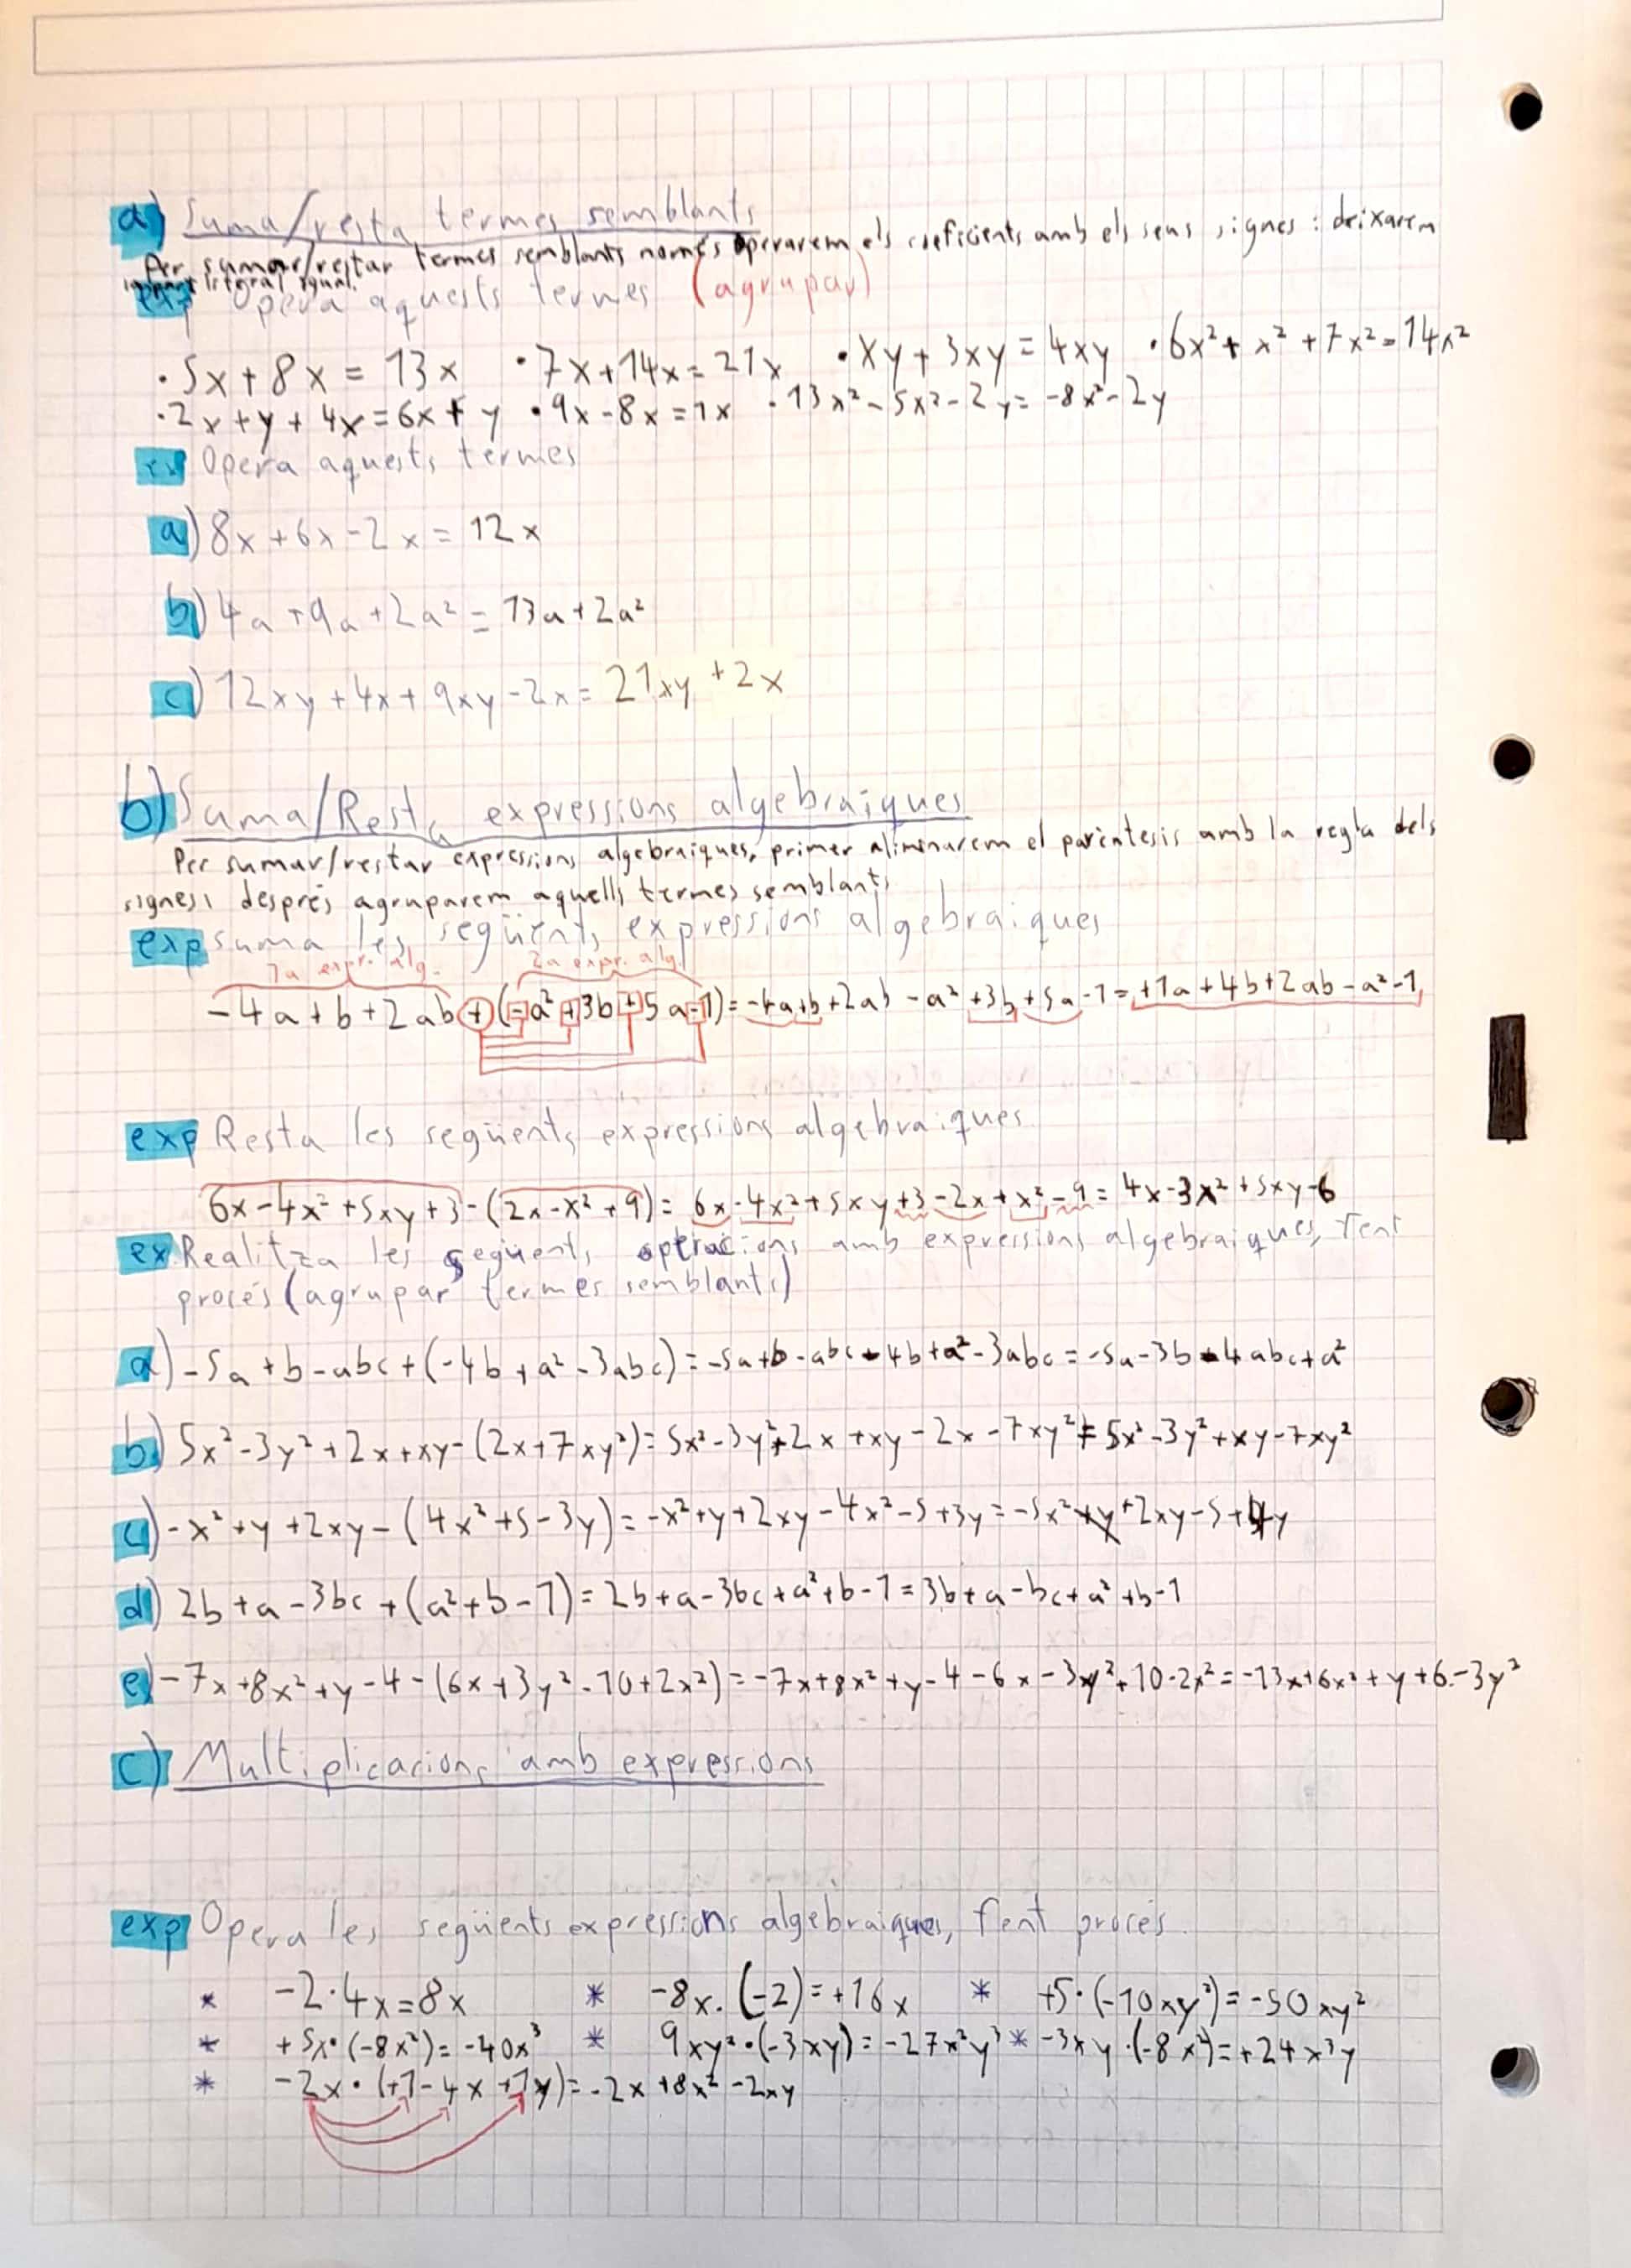 a) Suma/resta termes semblants
Per sumar/restar termes semblants només operarem els coeficients amb els seus signes i deixarem
la part literal igual.
exp Opera aquests termes (agrupar)
·5x+8x = 13x ·7x+14x=21x ·xy+3xy=4xy ·6x²+x²+7x²=14x²
·2x+y+4x=6x+y ·9x-8x=1x ·13x²-5x²-2y=-8x²-2y
ex Opera aquests termes
a) 8x+6x-2x= 12x
b) 4a+9a+2a²= 13a+2a²
c) 12xy+4x+9xy-2x= 21xy+2x
b) Suma/Resta expressions algebraiques
Per sumar/restar expressions algebraiques, primer aliminarem el parèntesis amb la regla dels
signes i després agruparem aquells termes semblants
exp suma les següents expressions algebraiques
1a expr. alg. 2a expr. alg.
-4a+b+2ab+(-a²+3b+5a-1)=-4a+b+2ab-a²+3b+5a-1=+1a+4b+2ab-a²-1
exp Resta les següents expressions algebraiques
6x-4x²+5xy+3-(2x-x²+9)= 6x-4x²+5xy+3-2x+x²-9= 4x-3x²+5xy-6
ex Realitza les següents operacions amb expressions algebraiques, fent
procés (agrupar termes semblants)
a) -5a+b-abc+(-4b+a²-3abc)=-5a+b-abc-4b+a²-3abc=-5a-3b-4abc+a²
b) 5x²-3y²+2x+xy-(2x+7xy²)=5x²-3y²+2x+xy-2x-7xy²=5x²-3y²+xy-7xy²
c) -x²+y+2xy-(4x²+5-3y)=-x²+y+2xy-4x²-5+3y=-5x²+y+2xy-5+4y
d) 2b+a-3bc+(a²+b-1)=2b+a-3bc+a²+b-1=3b+a-bc+a²+b-1
e) -7x+8x²+y-4-(6x+3y²-10+2x²)=-7x+8x²+y-4-6x-3y²+10-2x²=-13x+6x²+y+6-3y²
c) Multiplicacions amb expressions
exp Opera les següents expressions algebraiques, fent procés.
* -2·4x=8x * -8x·(-2)=+16x * +5·(-10xy²)=-50xy²
* +5x·(-8x²)=-40x³ * 9xy²·(-3xy)=-27x²y³ * -3xy·(-8x²)=+24x³y
* -2x·(+1-4x+1y)=-2x+8x²-2xy